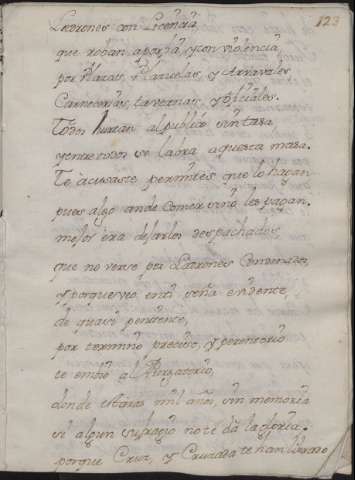 123
Ladrones con licencia
que roban aporfia y con violencia
por Plazas, Plazuelas, y Arravales
Carnecerias, tavernas, y oficiales.
Todos hurtan al publico sin tasa
y entre todos se labra aquesta masa.
Te acusaste permites que lo hagan
pues algo an de Comer sino les pagan.
mejor era dejarlos despachados
que no verse por Ladrones Condenados,
y porque veo en ti seña evidente,
de quasi penitente,
por termino preciso, y perentorio
te embio al Purgatorio,
donde estaras mil años, sin memoria
si algun sufragio no te dà la gloria.
porque Cruz, y Cruzada te han librado